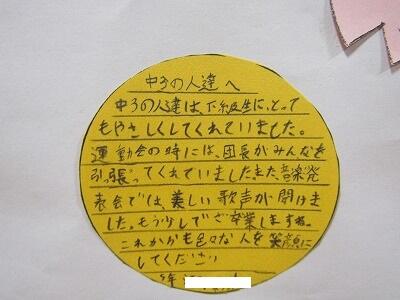 中3の人達へ
中3の人達は、下級生に、とって
もやさしくしてくれていました。
運動会の時には、団長がみんなを
引っ張ってくれていましたまた、音楽発
表会では、美しい歌声が聞けま
した。もう少しでご卒業しますね。
これからも色々な人を笑顔に
してください